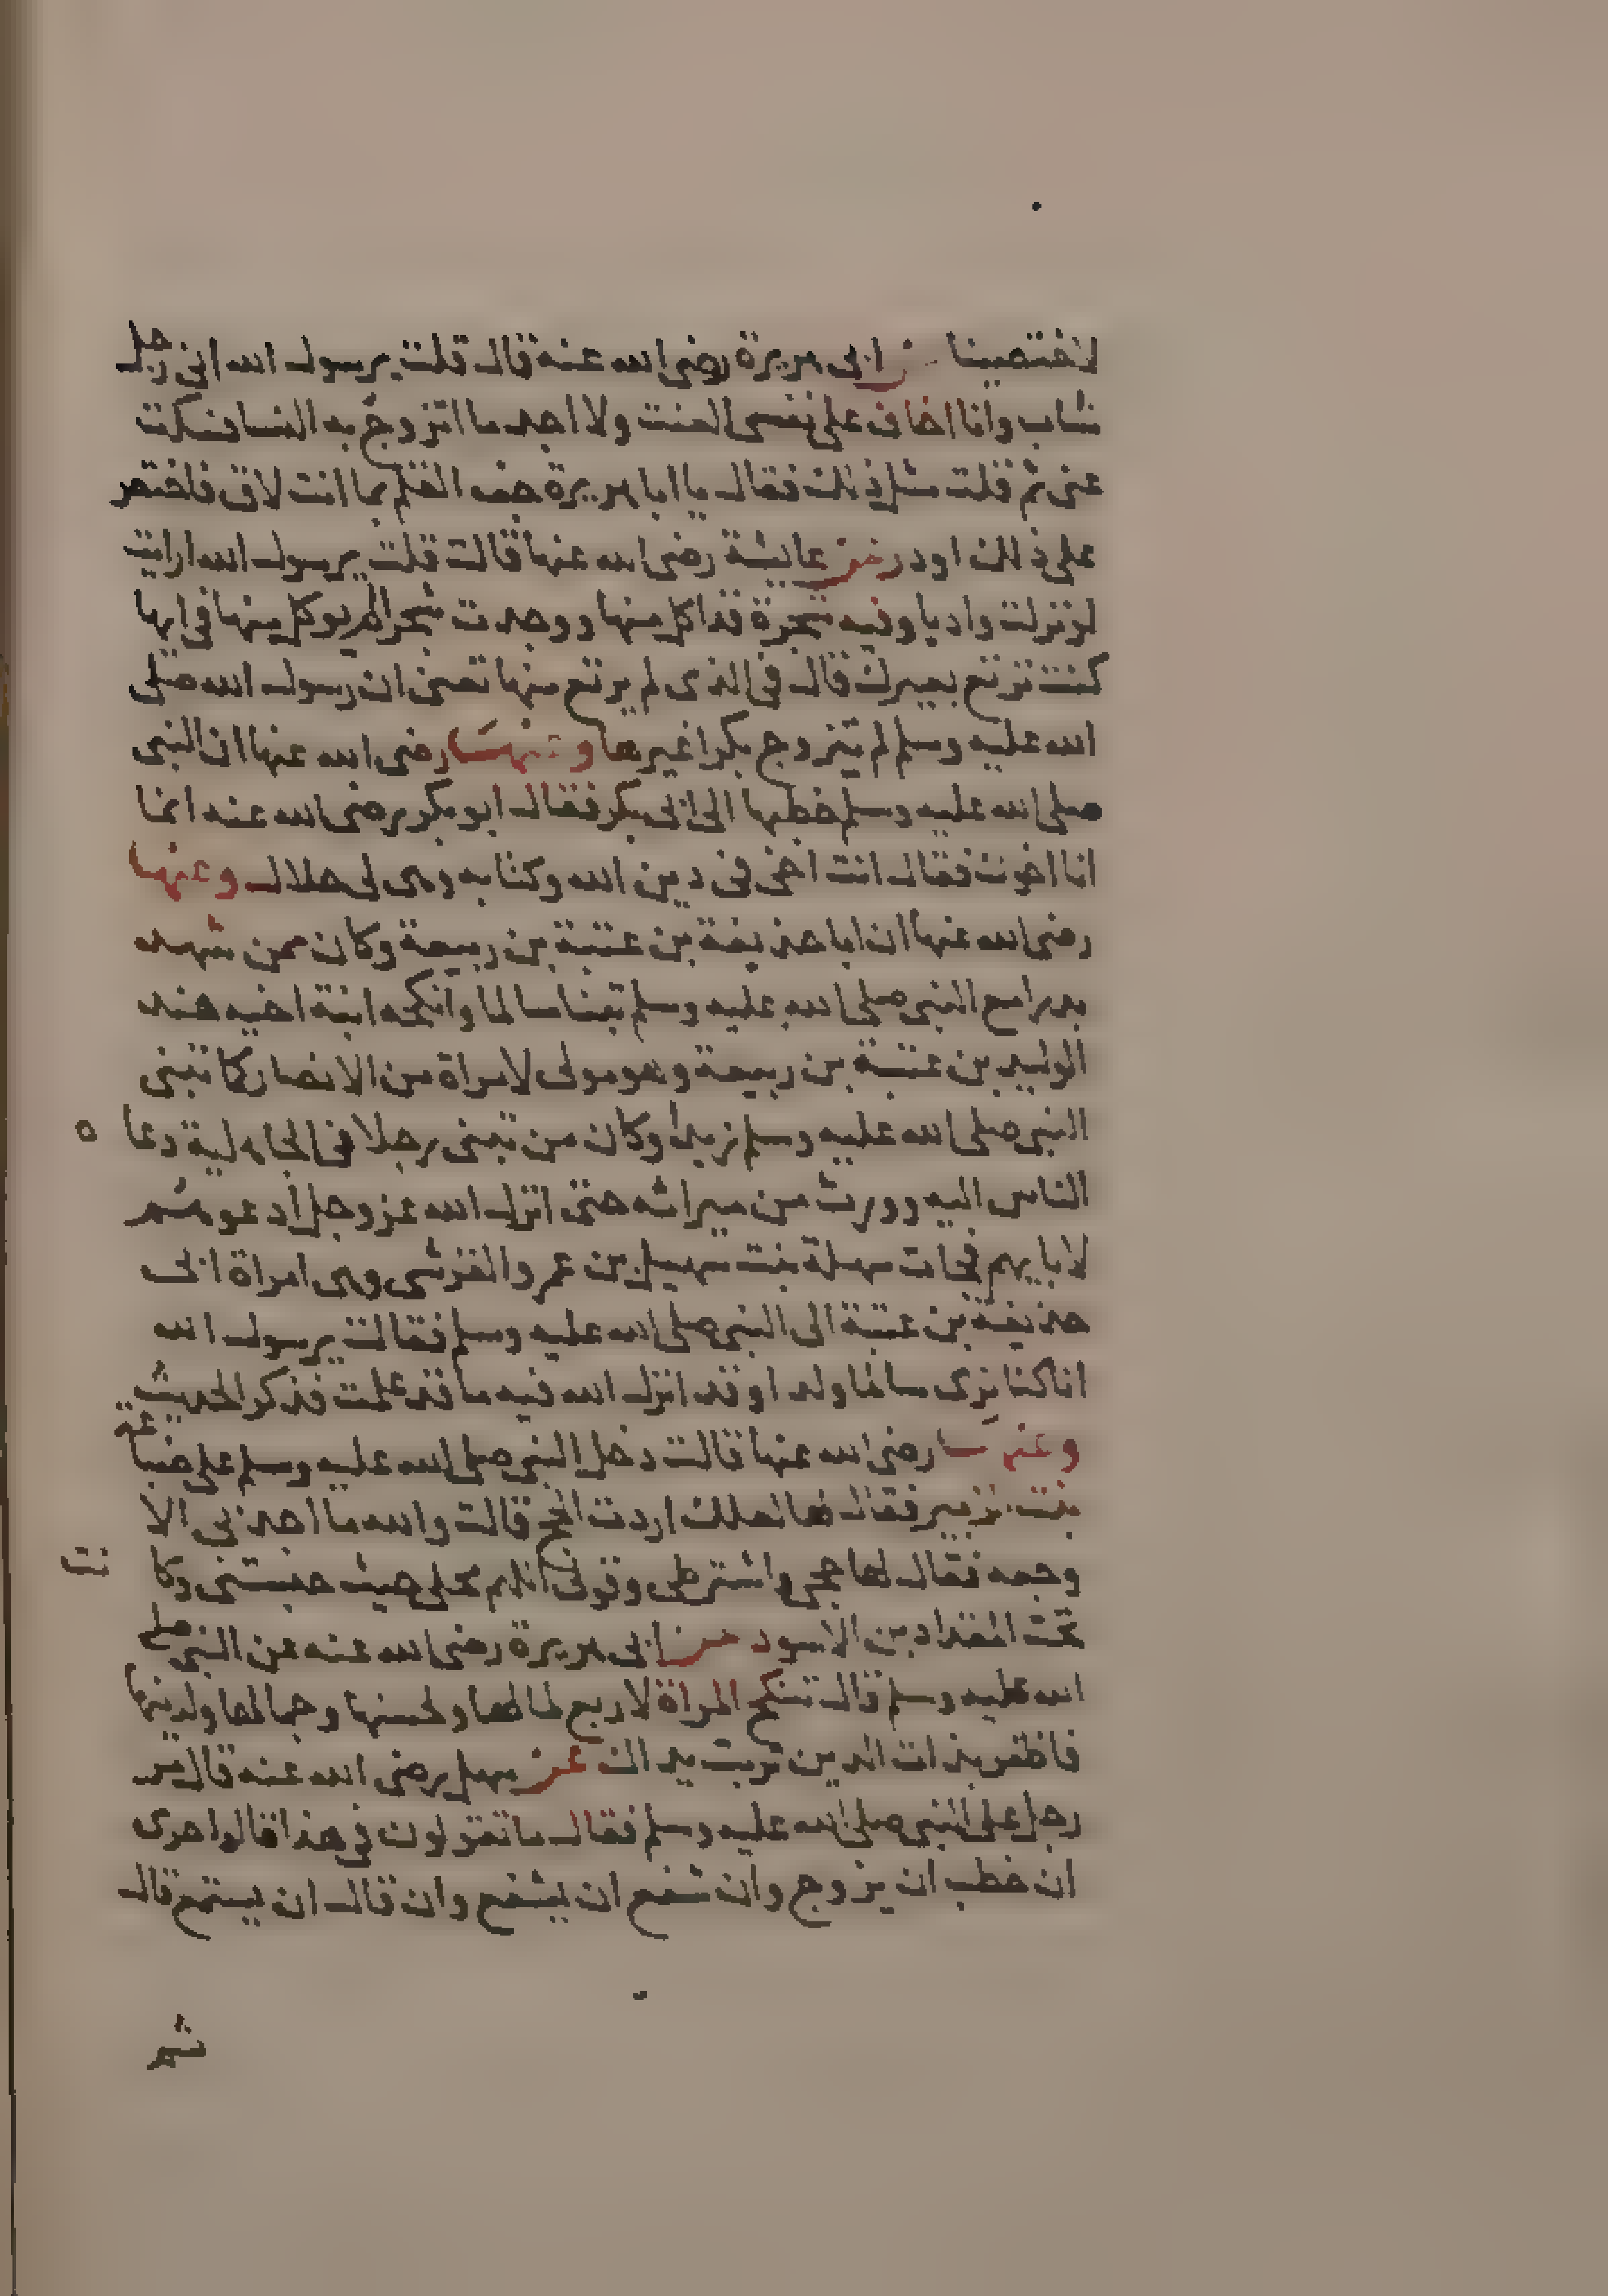 لاختصينا عن ابى هريرة رضى الله عنه قال قلت يرسول الله انى رجل
شاب وانا اخاف على نفسى العنت ولا اجد ما اتزوج به النسا فسكت
عنى ثم قلت مثل ذلك فقال يا ابا هريرة جف القلم بما انت لاق فاختص
على ذلك او در عن عايشة رضى الله عنها قالت قلت يرسول الله ارايت
لو نزلت واديا وفيه شجرة قد اكل منها ووجدت شجرا لم يوكل منها فى ايها
كنت ترتع بعيرك قال فى الذى لم يرتع منها تعنى ان رسول الله صلى
الله عليه وسلم لم يتزوج بكرا غيرها وعنها رضى الله عنها ان النبى
صلى الله عليه وسلم خطبها الى ابى بكر فقال ابو بكر رضى الله عنه انما
انا اخوك فقال انت اخى فى دين الله وكتابه وهى لى حلال وعنها
رضى الله عنها ان ابا حذيفة بن عتبة بن ربيعة وكان ممن شهد
بدرا مع النبى صلى الله عليه وسلم تبنا سالما وانكحه ابنة اخيه هند
الوليد بن عتبة بن ربيعة وهو مولى لامراة من الانصار كما تبنى
النبى صلى الله عليه وسلم زيدا وكان من تبنى رجلا فى الجاهلية دعا ه
الناس اليه وورث من ميراثه حتى انزل الله عز وجل ادعوهم
لابايهم فجات سهلة بنت سهيل بن عمرو القرشى وهى امراة ابى
حذيفة بن عتبة الى النبى صلى الله عليه وسلم فقالت يرسول الله
انا كنا نرى سالما ولدا وقد انزل الله فيه ما قد علمت فذكر الحديث
وعنها رضى الله عنها قالت دخل النبى صلى الله عليه وسلم على ضباعة
بنت الزبير فقال لها لعلك اردت الحج قالت والله ما اجدنى الا
وجعه فقال لها حجى واشترطى وقولى اللهم محلى حيث حبستنى وكانت
تحت المقداد بن الاسود عن ابى هريرة رضى الله عنه عن النبى صلى
الله عليه وسلم قال تنكح المراة لاربع لمالها ولحسنها وجمالها ولدينها
فاظفر بذات الدين تربت يداك عن سهل رضى الله عنه قال مر
رجل على النبى صلى الله عليه وسلم فقال ما تقولون فى هذا قالوا حرى
ان خطب ان يزوج وان شفع ان يشفع وان قال ان يستمع قال
ثم